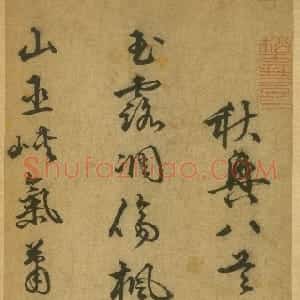 秋興八首
玉露凋傷楓
山巫峽氣蕭
ShufaZhao.com